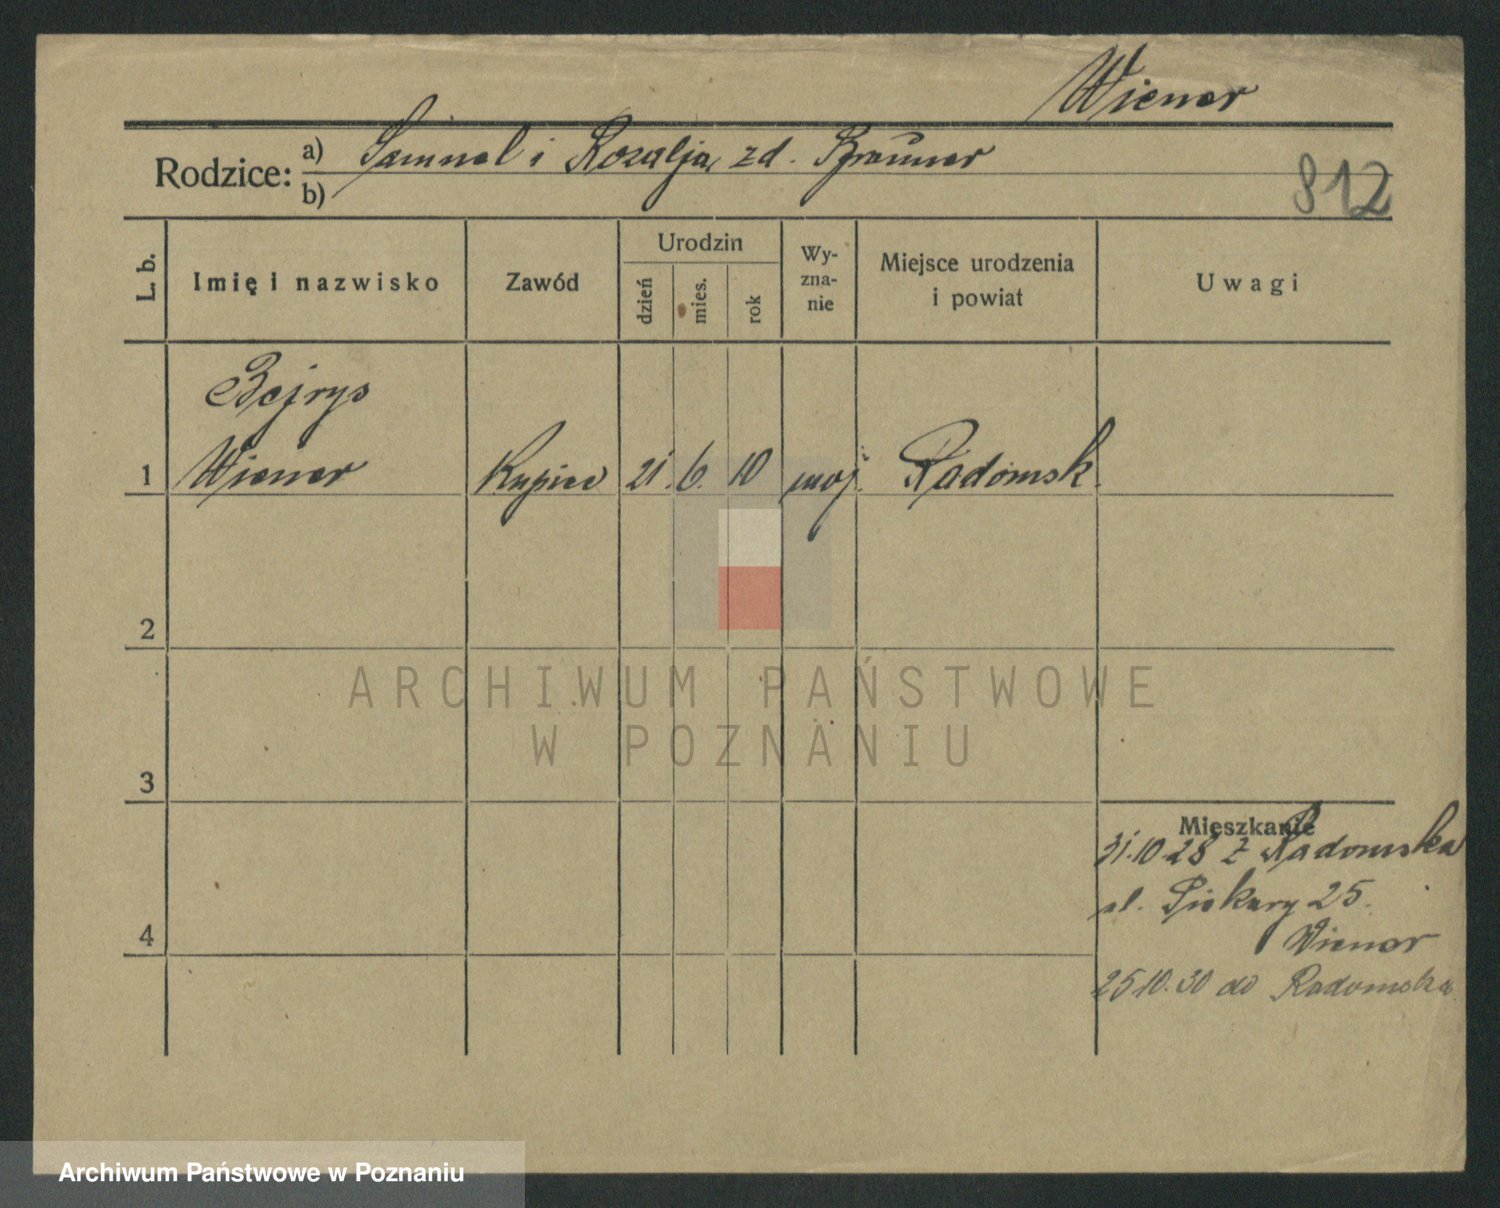 Wiener
Rodzice: a) Samuel i Rozalja zd. Brauner
b)
812
L. b. Imię i nazwisko Zawód Urodzin dzień mies. rok Wy-zna-nie Miejsce urodzenia i powiat Uwagi
Bejrys
1 Wiener Kupiec 21. 6. 10 moj. Radomsk.
2
ARCHIWUM PAŃSTWOWE
W POZNANIU
3
Mieszkanie
31.10 28 z Radomska
ul. Piekary 25.
4
Wiener
25 10. 30 do Radomska
Archiwum Państwowe w Poznaniu